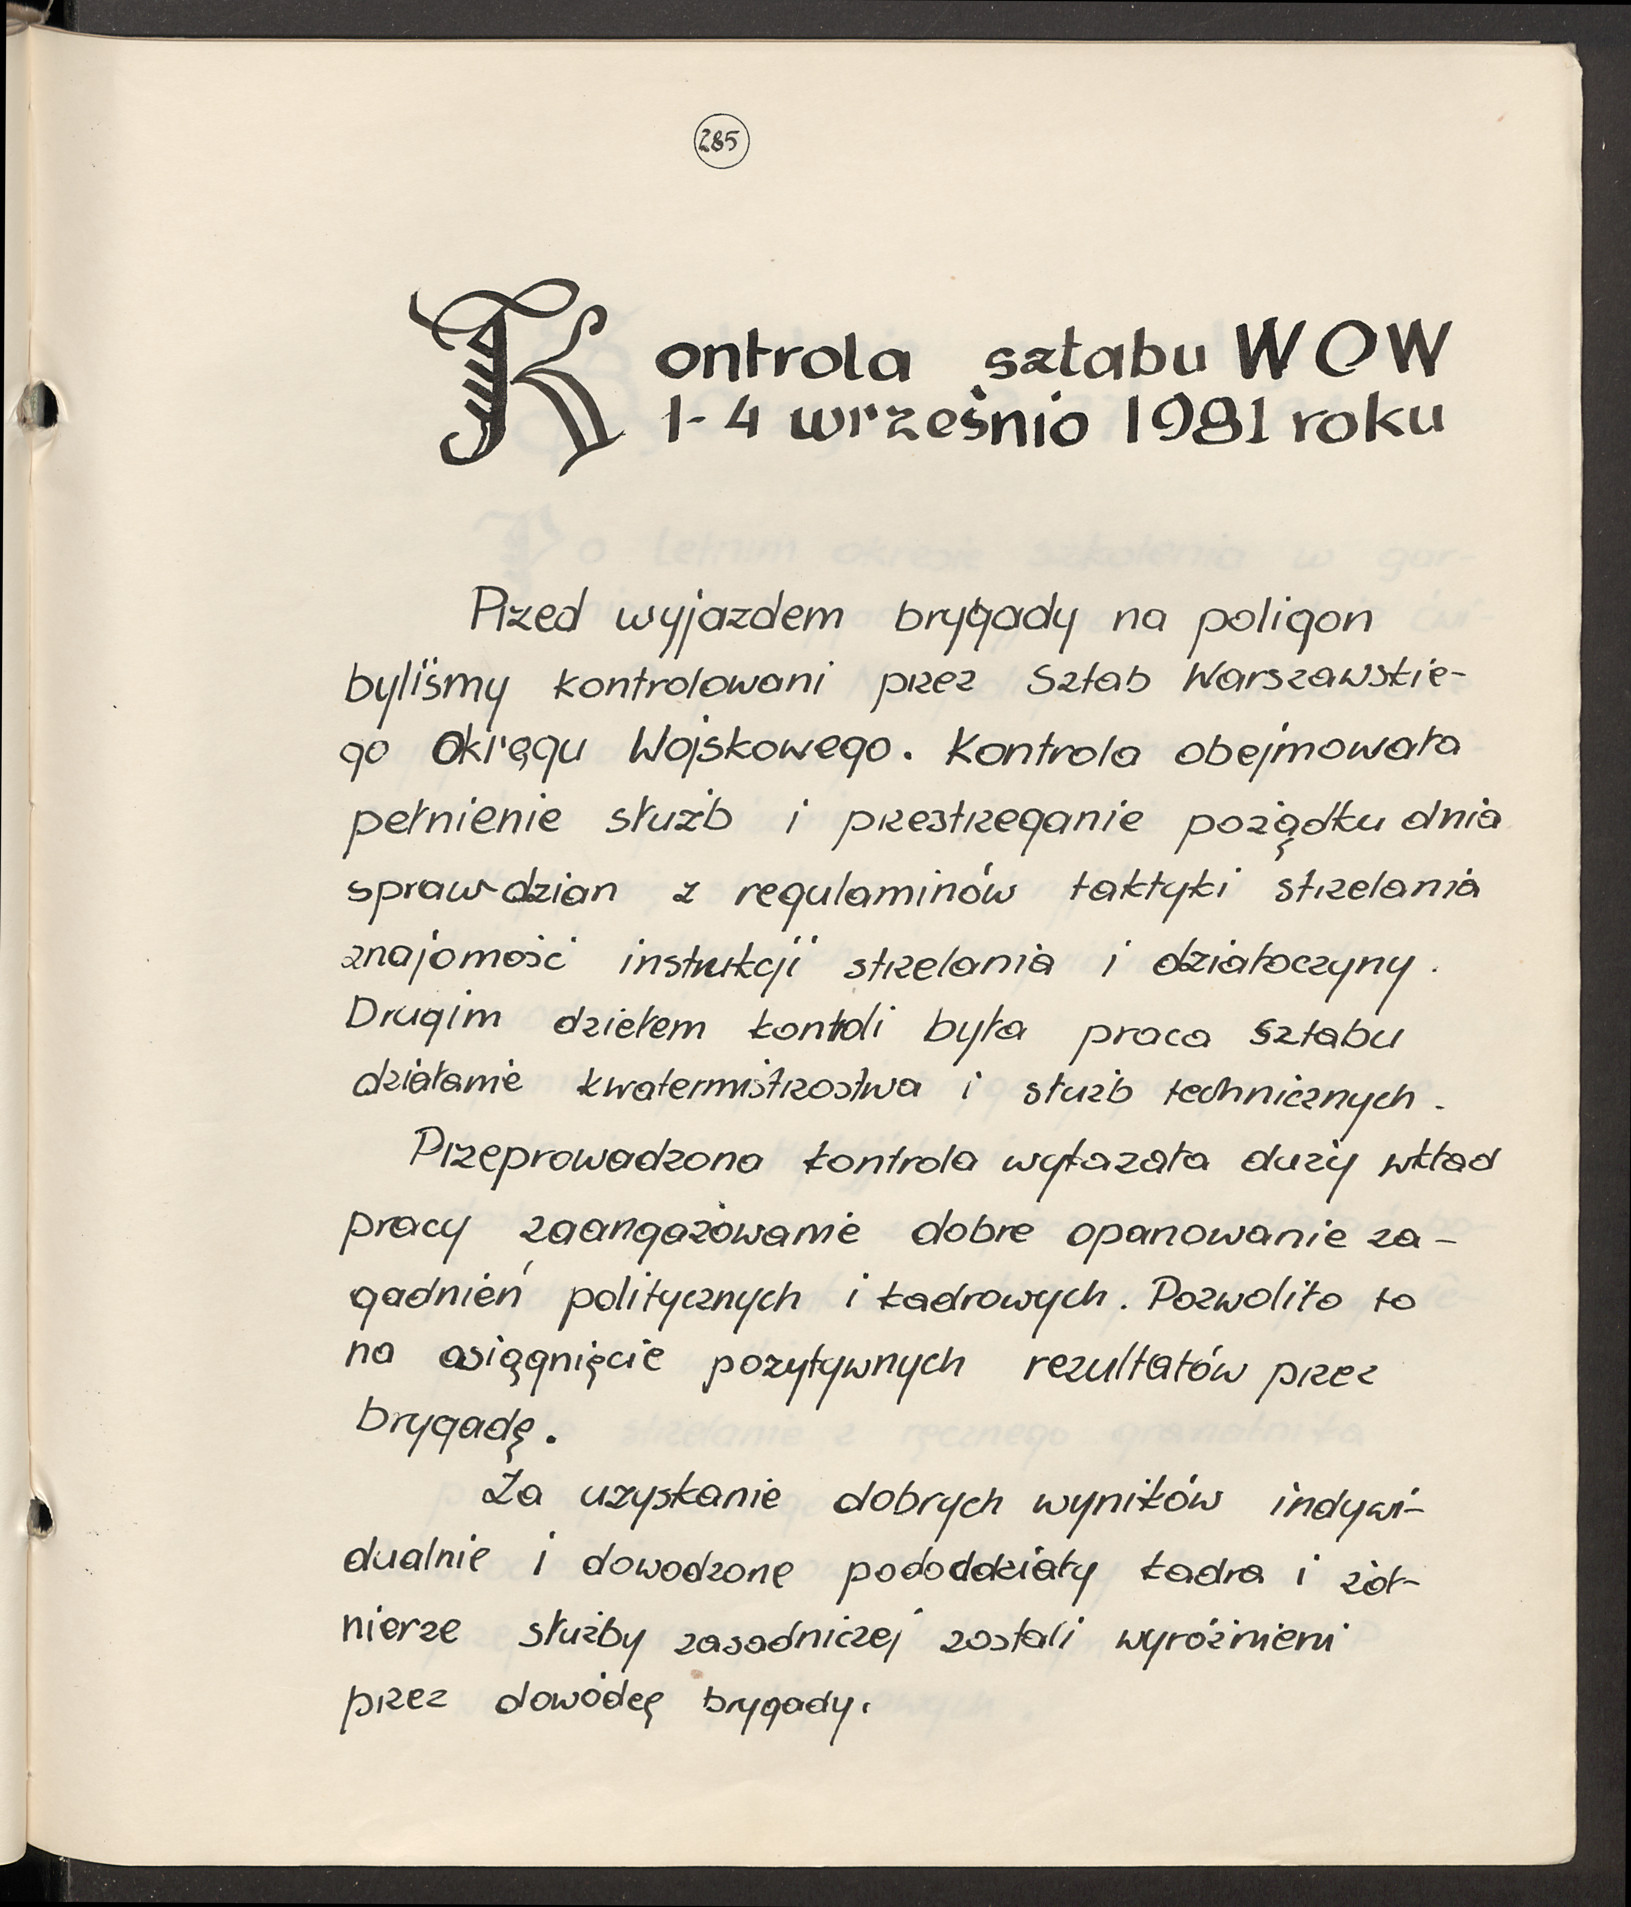 285
Kontrola sztabu WOW
1-4 wrześnio 1981 roku
Przed wyjazdem brygady na poligon
byliśmy kontrolowani przez Sztab Warszawskie-
go Okręgu Wojskowego. Kontrola obejmowała
pełnienie służb i przestrzeganie porządku dnia
sprawdzian z regulaminów taktyki strzelania
znajomość instrukcji strzelania i działoczyny.
Drugim działem kontroli była praca sztabu
działanie kwatermistrzostwa i służb technicznych.
Przeprowadzona kontrola wykazała duży wkład
pracy zaangażowanie dobre opanowanie za-
gadnień politycznych i kadrowych. Pozwoliło to
na osiągnięcie pozytywnych rezultatów przez
brygadę.
Za uzyskanie dobrych wyników indywi-
dualnie i dowodzone pododdziały kadra i żoł-
nierze służby zasadniczej zostali wyróżnieni
przez dowódcę brygady.